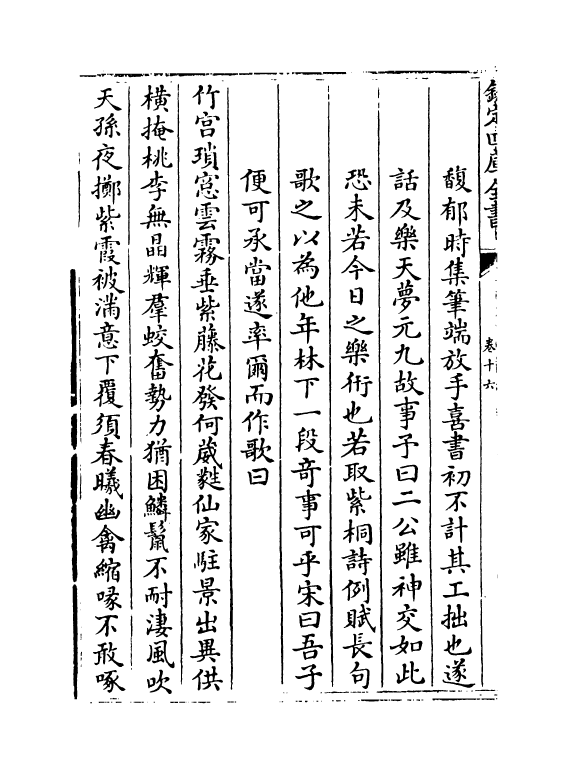 欽定四庫全書
卷十六
馥郁時集筆端放手喜書初不計其工拙也遂
話及樂天夢元九故事予曰二公雖神交如此
恐未若今日之樂術也若取紫桐詩例賦長句
歌之以為他年林下一段竒事可乎宋曰吾子
便可承當遂率爾而作歌曰
竹宫瑣窓雲霧垂紫藤花發何葳蕤仙家駐景出異供
横掩桃李無晶輝羣蛟奮勢力猶困鱗鬛不耐淒風吹
天孫夜擲紫霞被满意下覆須春曦幽禽縮喙不敢啄